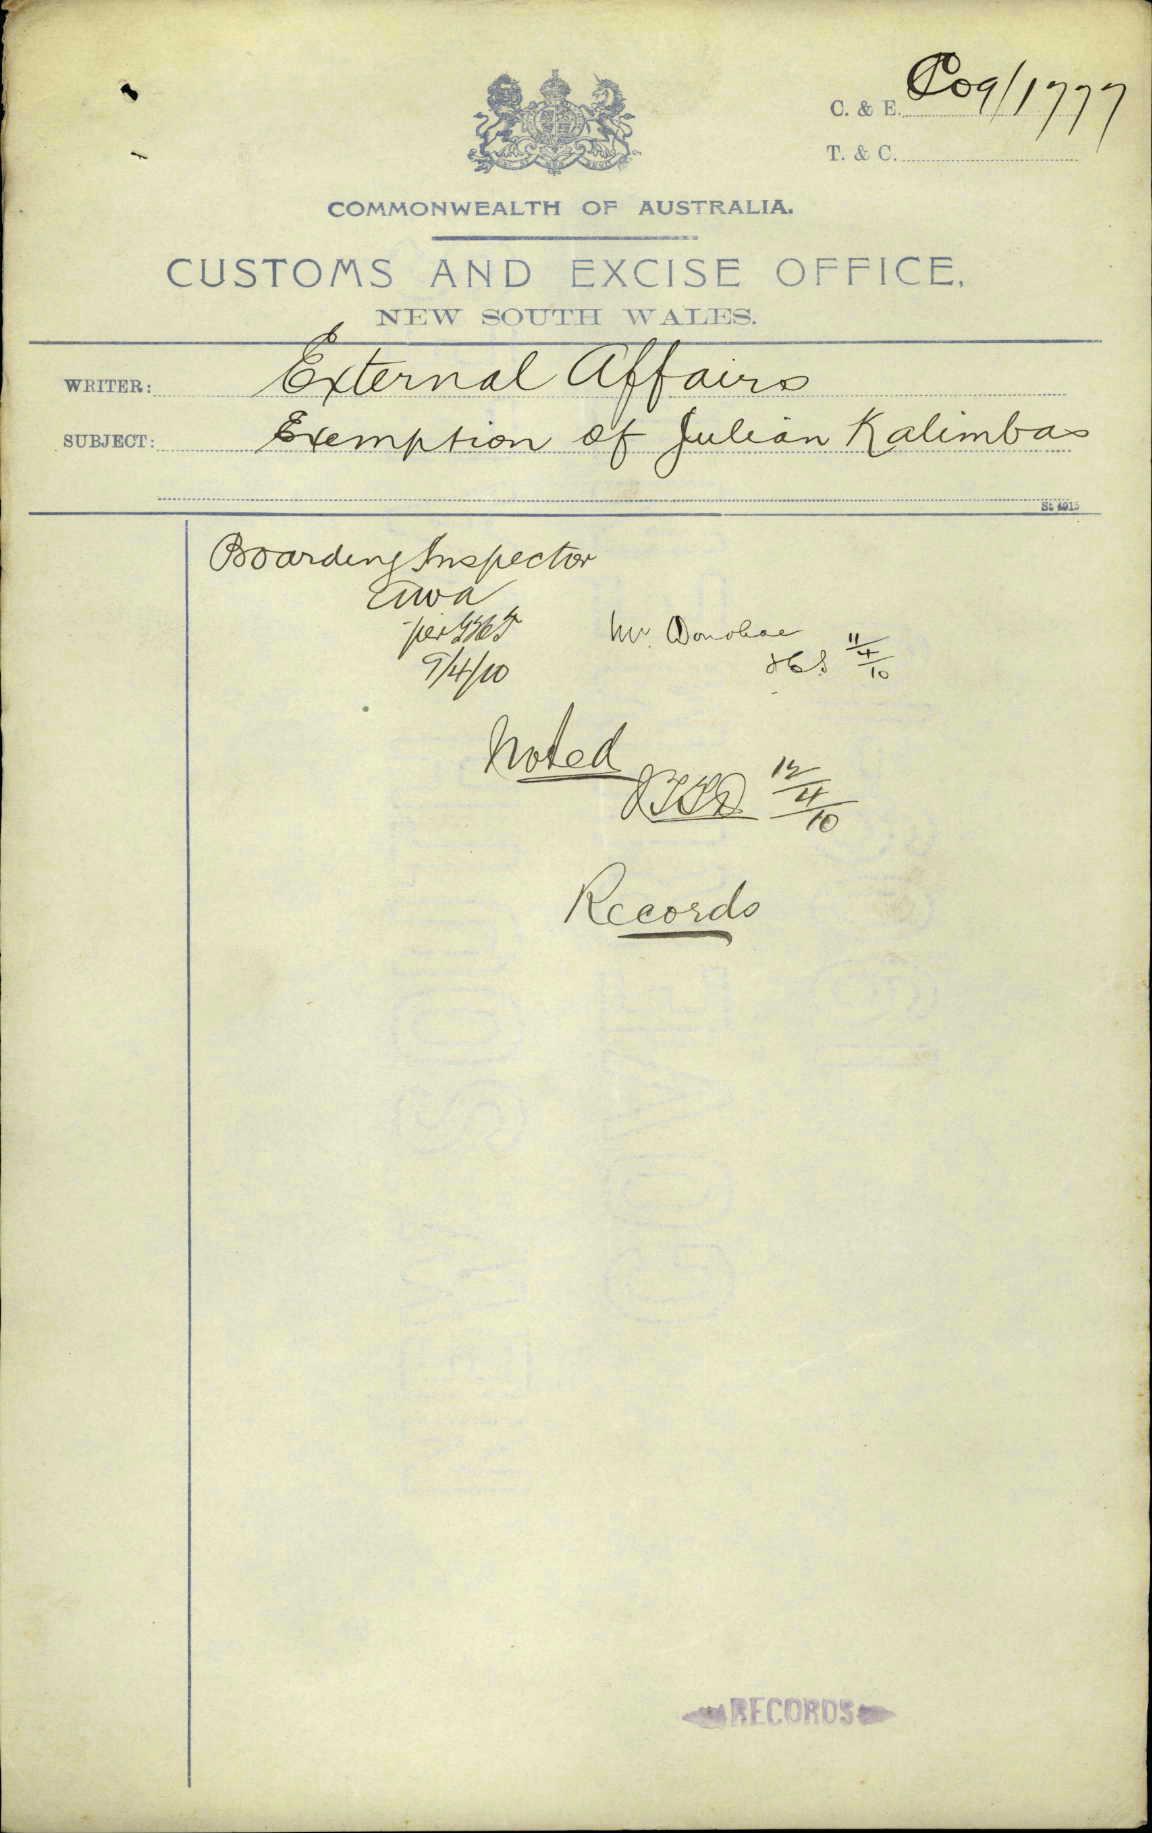 C. & E. C09/1777
T. & C.
COMMONWEALTH OF AUSTRALIA.
CUSTOMS AND EXCISE OFFICE,
NEW SOUTH WALES.
WRITER: External Affairs
SUBJECT: Exemption of Julian Kalimbas
St 4915
Boarding Inspector
per
9/4/10
Mr. Donohoe
11/4/10
Noted
12/4/10
Records
RECORDS